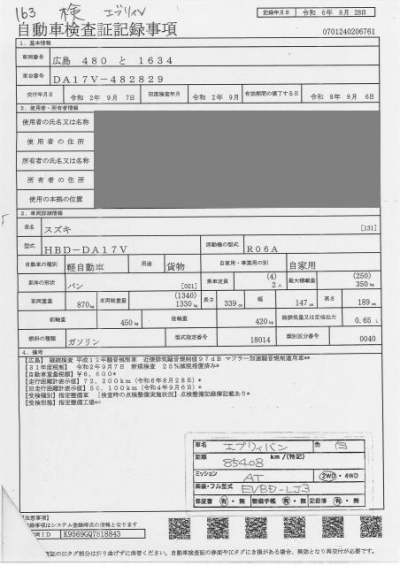 163 検 エブリィV
記録年月日 令和 6年 8月28日
自動車検査証記録事項 0701240206761
1．基本情報
車両番号 広島 480 と 1634
車台番号 DA17V-482829
交付年月日 令和 2年 9月 7日 初度検査年月 令和 2年 9月 有効期間の満了する日 令和 8年 9月 6日
2．使用者・所有者情報
使用者の氏名又は名称
使用者の住所
所有者の氏名又は名称
所有者の住所
使用の本拠の位置
3．車両詳細情報
車名 スズキ [131]
型式 HBD-DA17V 原動機の型式 R06A
自動車の種別 軽自動車 用途 貨物 自家用・事業用の別 自家用
車体の形状 バン [021] 乗車定員 (4) 2人 最大積載量 (250) 350kg
車両重量 870kg 車両総重量 (1340) 1330kg 長さ 339cm 幅 147cm 高さ 189cm
前軸重 450kg 後軸重 420kg 総排気量又は定格出力 0.65L
燃料の種類 ガソリン 型式指定番号 18014 類別区分番号 0040
4．備考
[広島] 継続検査 平成12年騒音規制車 近接排気騒音規制値97dB マフラー加速騒音規制適用車**
[31年度税制] 令和2年9月7日 新規検査 25%減税措置済み*
[自動車重量税額] ¥6,600*
[走行距離計表示値] 72,200km (令和6年8月28日)*
[旧走行距離計表示値] 50,100km (令和4年9月6日)*
[受検種別] 指定整備車 [検査時の点検整備実施状況] 点検整備記録簿記載あり*
[受検形態] 指定整備工場**
車名 エブリィバン 色 白
距離 85408 km/(特記)
ミッション AT 2WD・4WD
類別・フル型式 EVBD-LJ3
保証書 有・無 整備手帳 有・無 記録簿 有・無
[注意事項]
記録事項はシステム登録時点の情報となります
K9569GQ7818843
証のICタグ部分は折り曲げずに保管ください。自動車検査証の券面やICタグにき損がある場合、無効となり再交付が必要です。